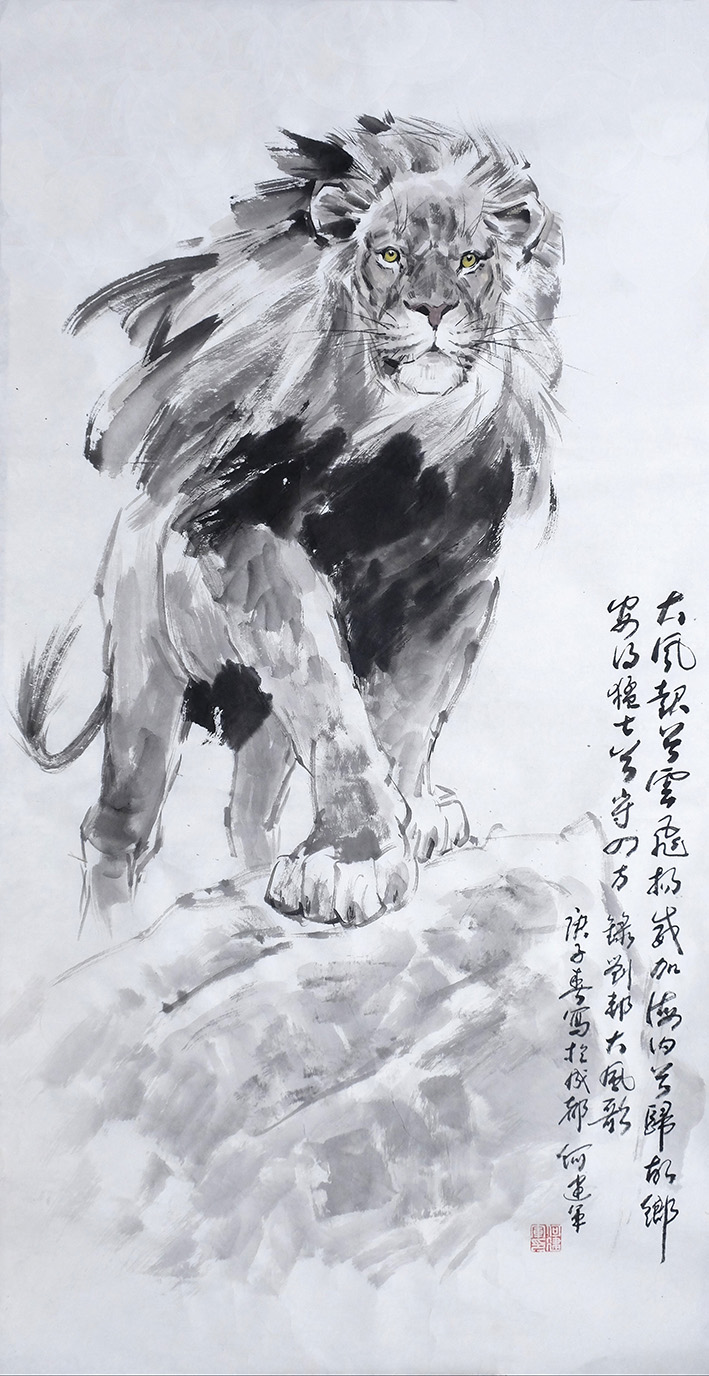 大風起兮雲飛揚威加海内兮歸故鄉
安得猛士兮守四方 錄劉邦大風歌
庚子春寫於成都 何建軍